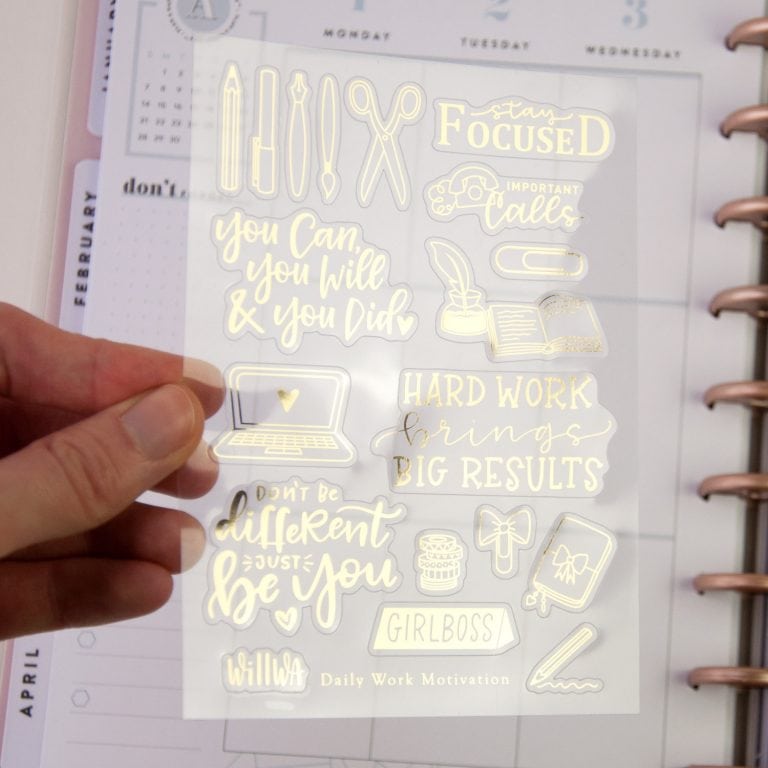 A
1
2
3
MONDAY
TUESDAY
WEDNESDAY
JANUARY
FEBRUARY
APRIL
don't
stay
FOCUSED
IMPORTANT
Calls
you Can,
you Will
& you Did
HARD WORK
brings
BIG RESULTS
DON'T BE
different
JUST
be you
GIRLBOSS
WillWa
Daily Work Motivation